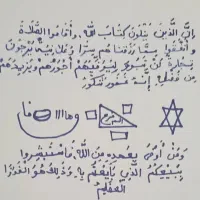 إن الذين يتلون كتاب الله وأقاموا الصلاة
وأنفقوا مما رزقناهم سرا وعلانية يرجون
تجارة لن تبور ليوفيهم أجورهم ويزيدهم
من فضله إنه غفور شكور
ومن أوفى بعهده من الله فاستبشروا
ببيعكم الذي بايعتم به وذلك هو الفوز
العظيم